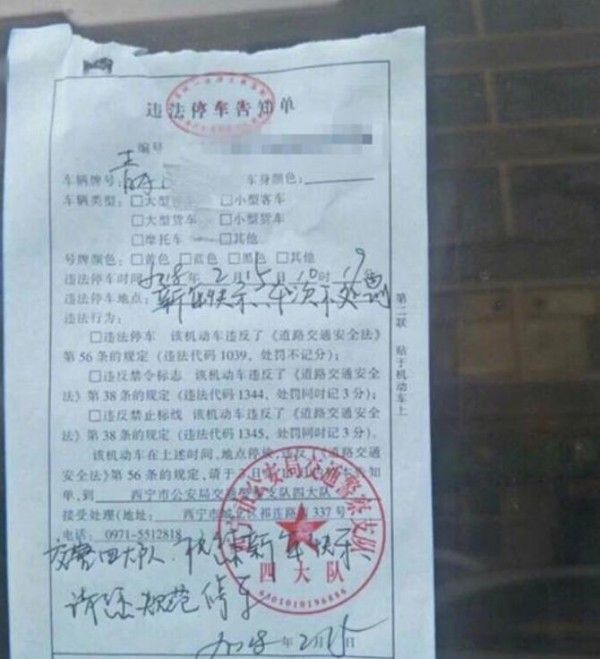 违法停车告知单
编号
车辆牌号: 青 车身颜色:
车辆类型: □大型客车 □小型客车
□大型货车 □小型货车
□摩托车 □其他
号牌颜色: □黄色 □蓝色 □黑色 □其他
违法停车时间: 2018年2月15日10时19
违法停车地点: 新年快乐!本次不处罚
违法行为:
□违法停车 该机动车违反了《道路交通安全法》
第56条的规定(违法代码1039,处罚不记分);
□违反禁令标志 该机动车违反了《道路交通安全
法》第38条的规定(违法代码1344,处罚同时记3分);
□违反禁止标线 该机动车违反了《道路交通安全
法》第38条的规定(违法代码1345,处罚同时记3分)。
该机动车在上述时间、地点停放,违反了《道路交通安
全法》第56条的规定,请于2日 告知
单,到 西宁市公安局交通警察支队四大队
接受处理(地址: 西宁市城北区祁连路 337号
电话: 0971-5512818
交警四大队 祝您新年快乐
请您规范停车
2018年2月15日
第二联 贴于机动车上
公安局交通警察支队
四大队
6301010196886